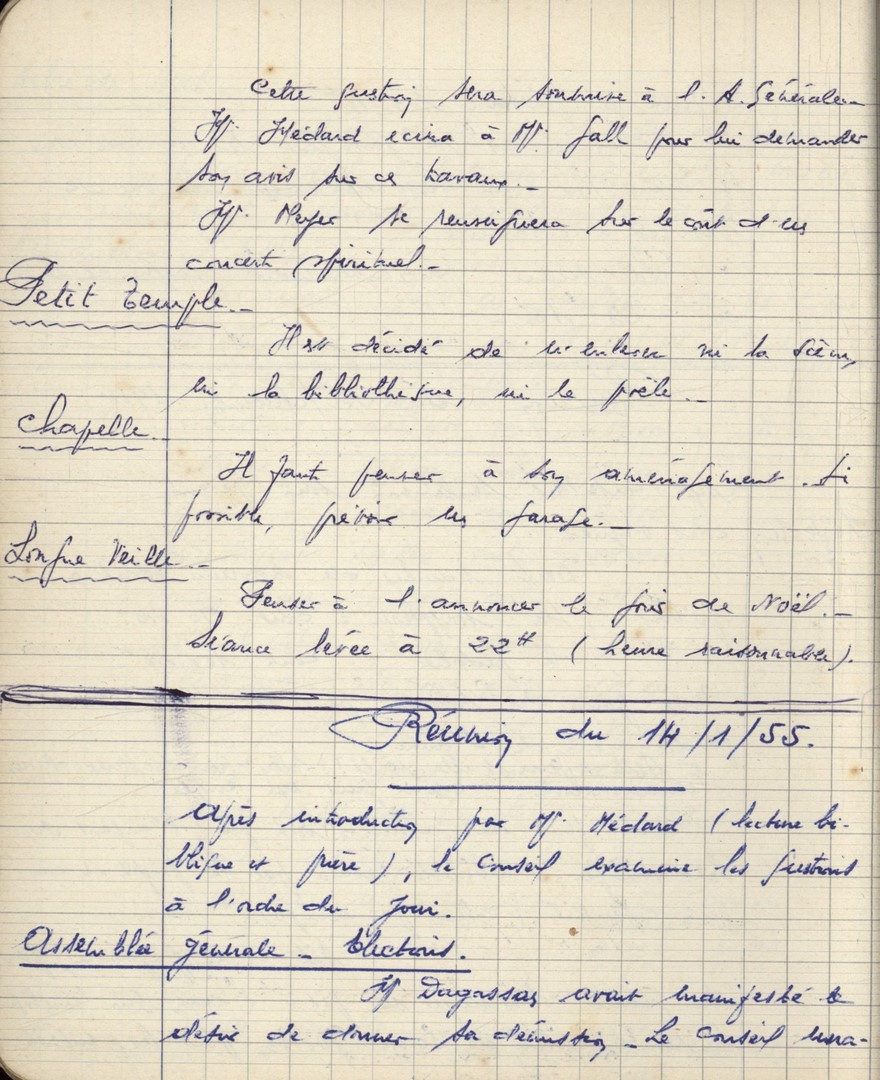 Cette question sera soumise à l. A. Générale._
M. Médard ecrira à M. Gall pour lui demander
son avis sur ces travaux._
M. Meyer se renseignera sur le coût d'un
concert spirituel._
Petit Temple._
Il est décidé de n'enlever ni la scène,
ni la bibliothèque, ni le poêle._
Chapelle._
Il faut penser à son aménagement. Si
possible, prévoir un garage._
Longue Veille._
Penser à l'annoncer le jour de Noël._
Séance levée à 22H (heure raisonnable).
Réunion du 14/1/55.
Après introduction par M. Médard (lecture bi-
blique et prière), le Conseil examine les questions
à l'ordre du jour.
Assemblée générale _ Elections.
M Dagassan avait manifesté le
désir de donner sa démission _ Le Conseil una-